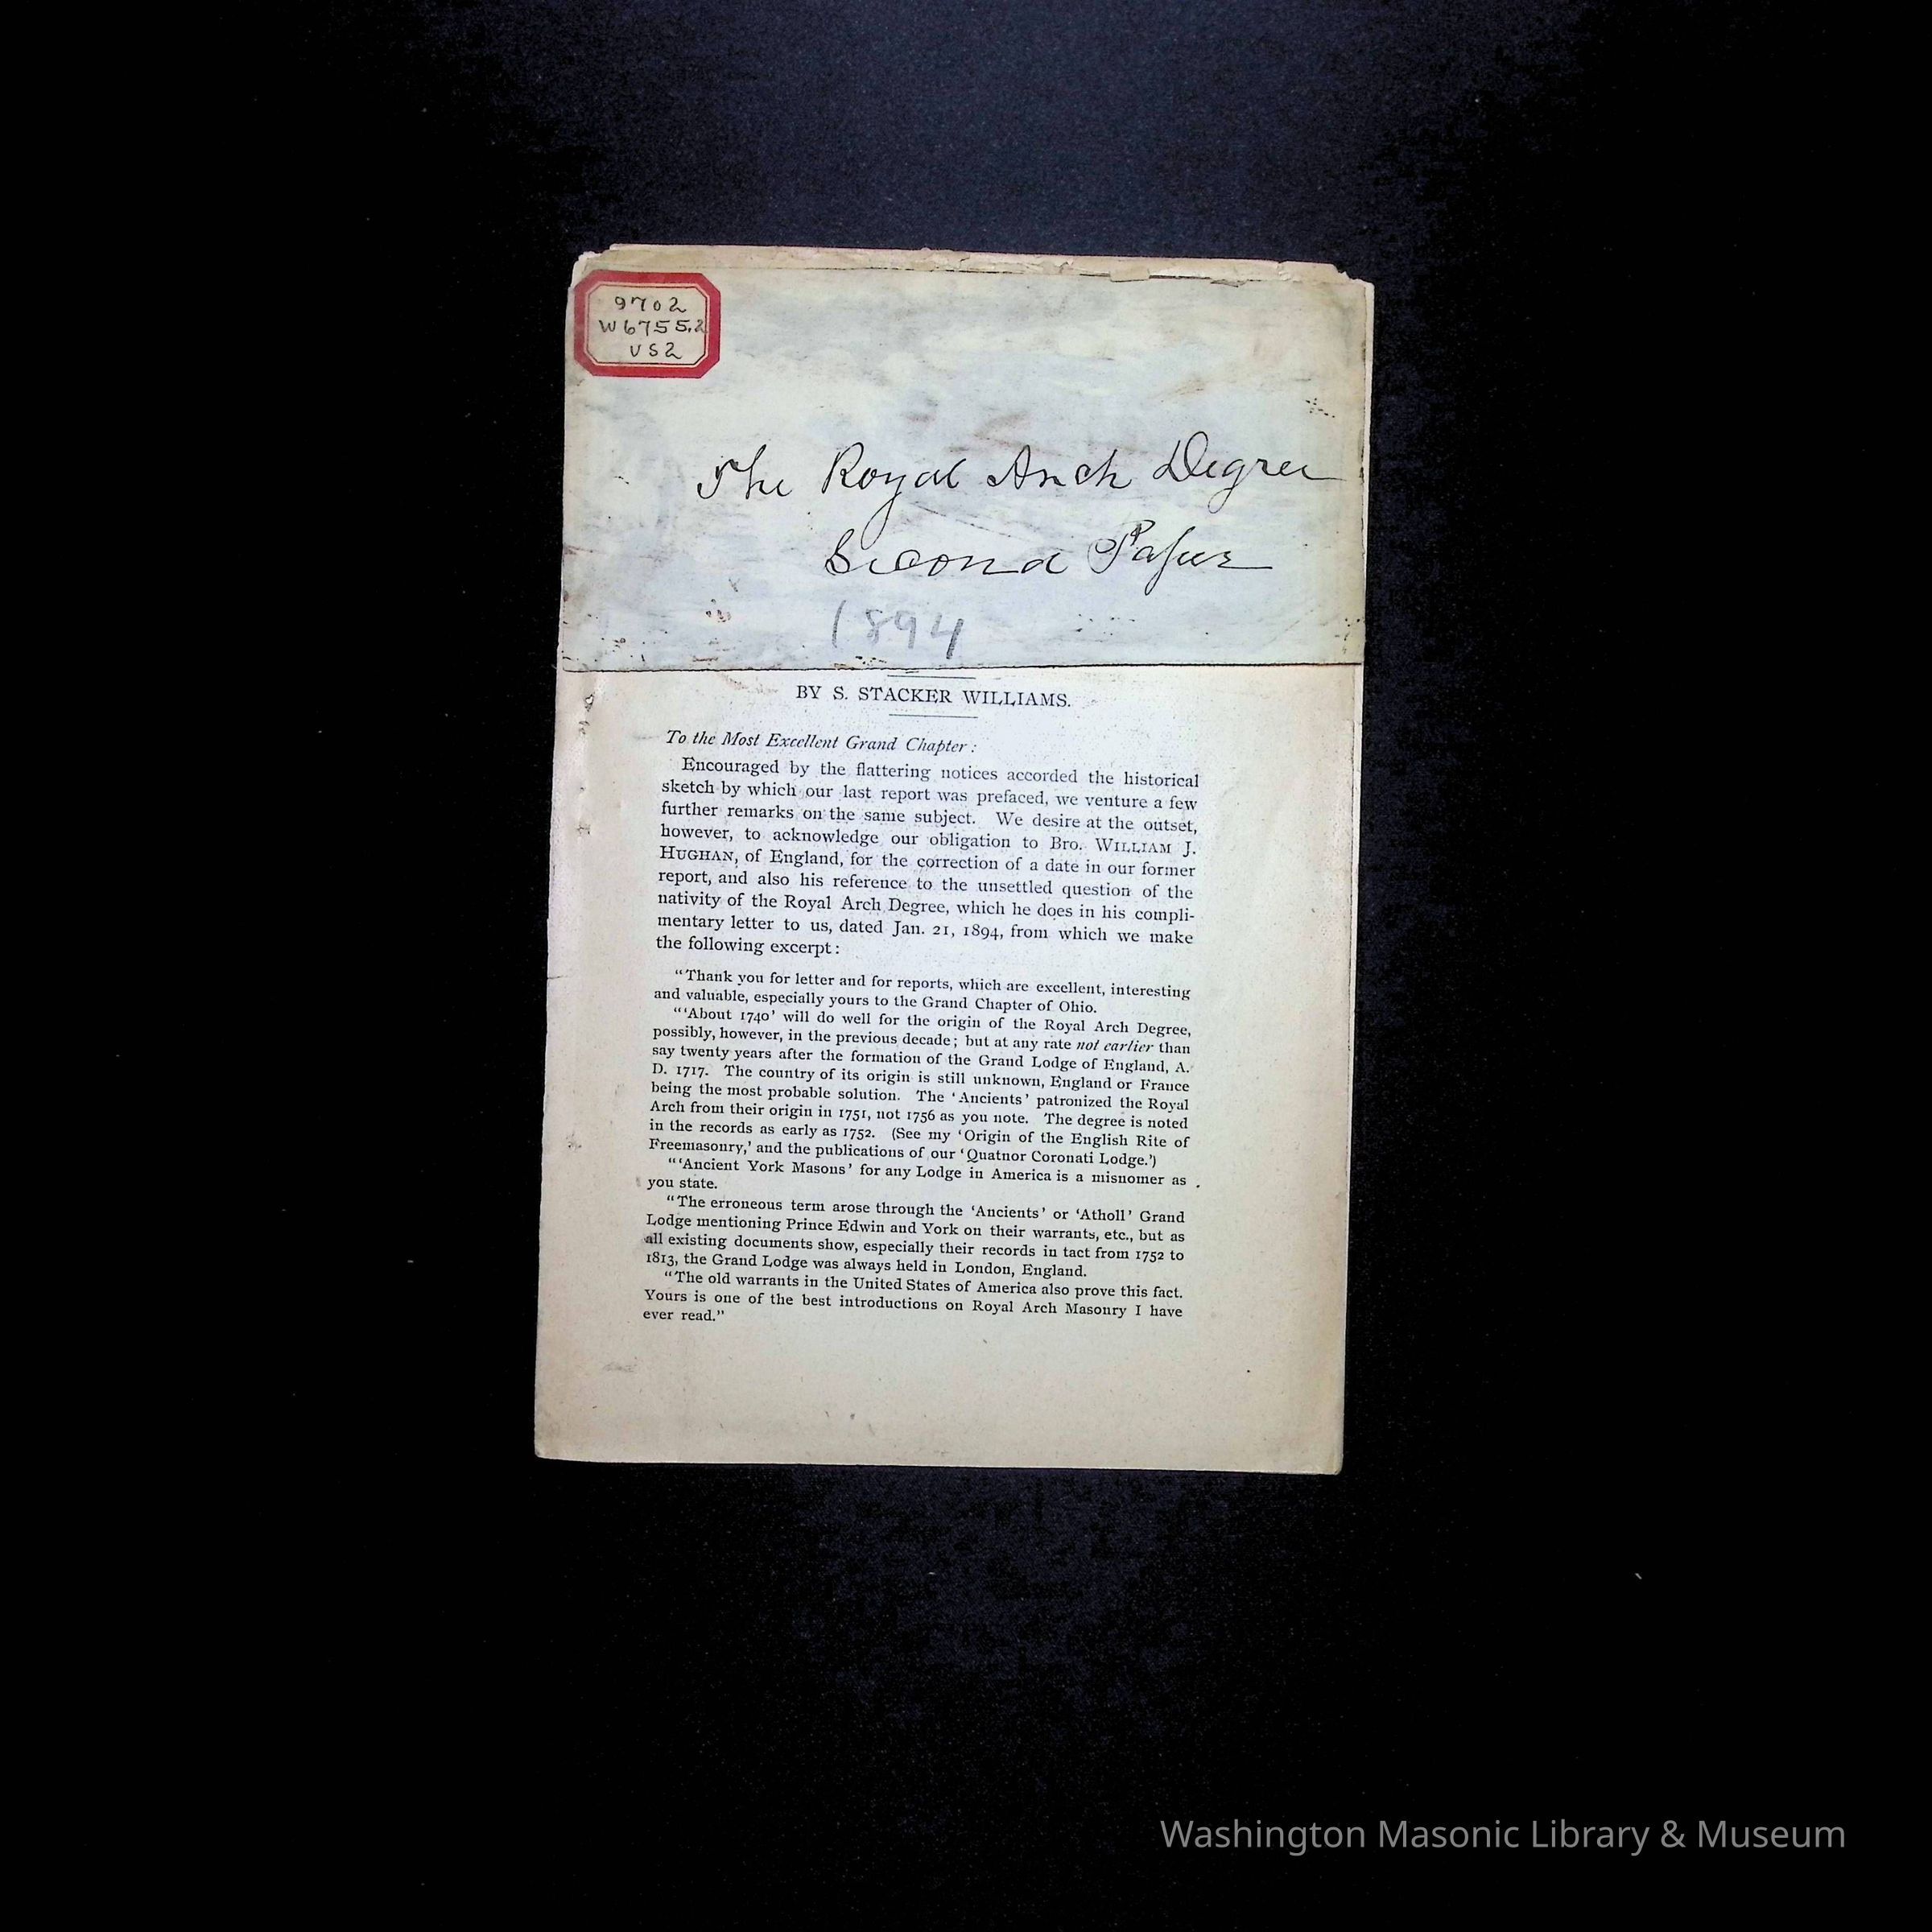 9702
W6755.2
VS2
The Royal Arch Degree
Second Paper
1894
BY S. STACKER WILLIAMS.
To the Most Excellent Grand Chapter:
Encouraged by the flattering notices accorded the historical
sketch by which our last report was prefaced, we venture a few
further remarks on the same subject. We desire at the outset,
however, to acknowledge our obligation to Bro. WILLIAM J.
HUGHAN, of England, for the correction of a date in our former
report, and also his reference to the unsettled question of the
nativity of the Royal Arch Degree, which he does in his compli-
mentary letter to us, dated Jan. 21, 1894, from which we make
the following excerpt:
"Thank you for letter and for reports, which are excellent, interesting
and valuable, especially yours to the Grand Chapter of Ohio.
"'About 1740' will do well for the origin of the Royal Arch Degree,
possibly, however, in the previous decade; but at any rate not earlier than
say twenty years after the formation of the Grand Lodge of England, A.
D. 1717. The country of its origin is still unknown, England or France
being the most probable solution. The 'Ancients' patronized the Royal
Arch from their origin in 1751, not 1756 as you note. The degree is noted
in the records as early as 1752. (See my 'Origin of the English Rite of
Freemasonry,' and the publications of our 'Quatnor Coronati Lodge.')
"'Ancient York Masons' for any Lodge in America is a misnomer as
you state.
"The erroneous term arose through the 'Ancients' or 'Atholl' Grand
Lodge mentioning Prince Edwin and York on their warrants, etc., but as
all existing documents show, especially their records in tact from 1752 to
1813, the Grand Lodge was always held in London, England.
"The old warrants in the United States of America also prove this fact.
Yours is one of the best introductions on Royal Arch Masonry I have
ever read."
Washington Masonic Library & Museum